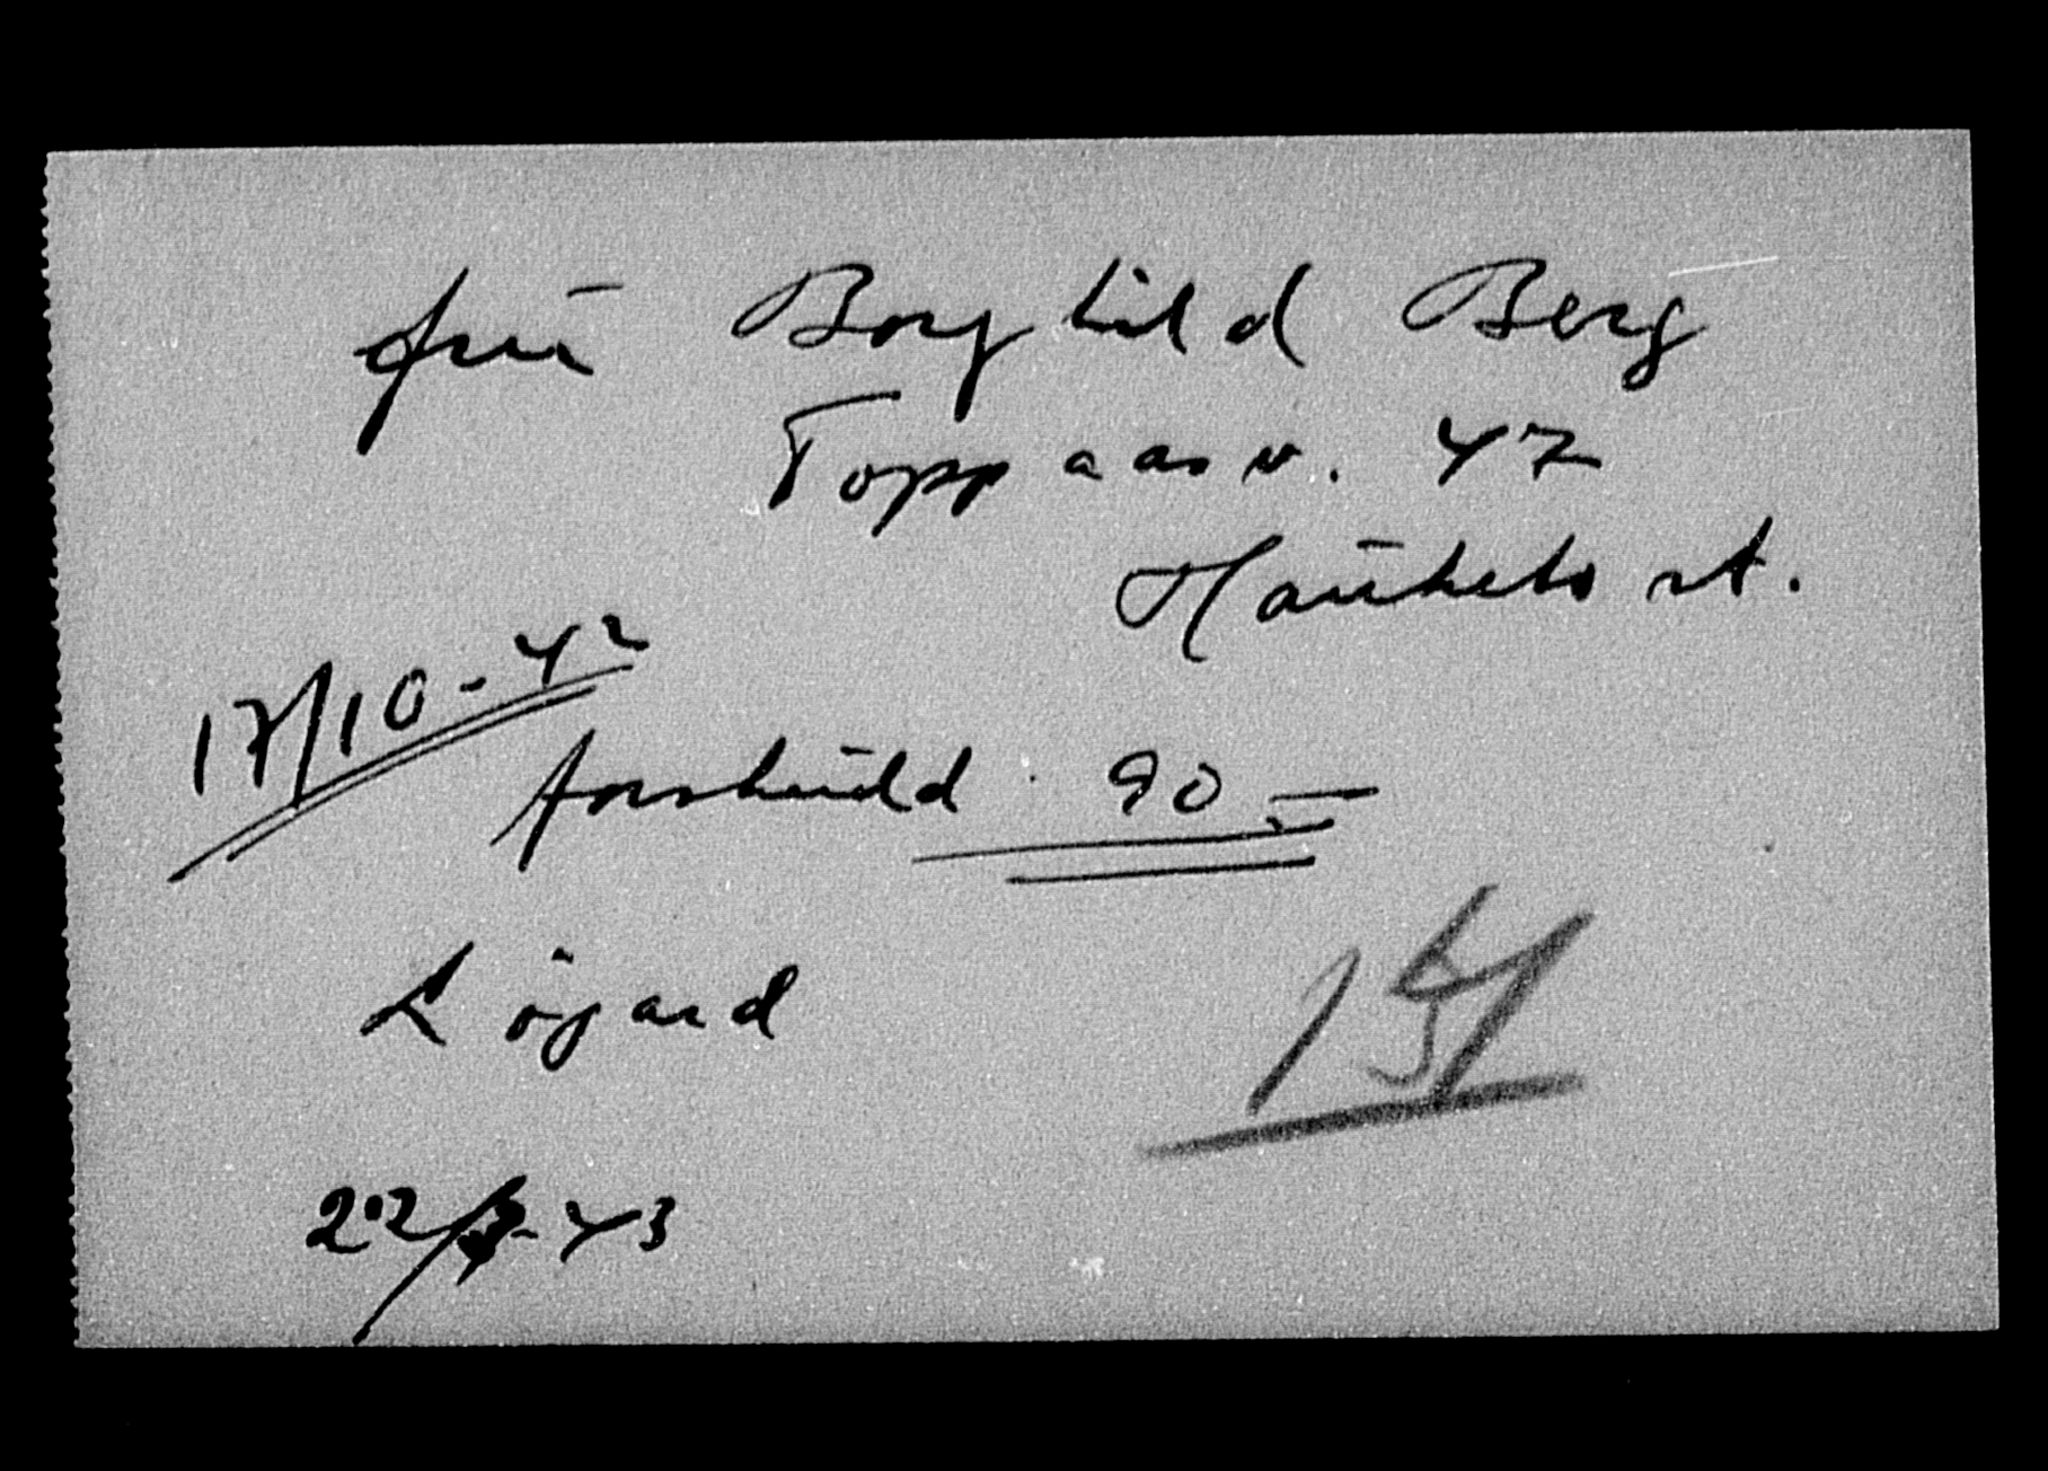 fru Borghild Berg
Toppaasv. 47
Hauketo st.
17/10-42
forskudd 90.-
Løgard
157
22/3-43